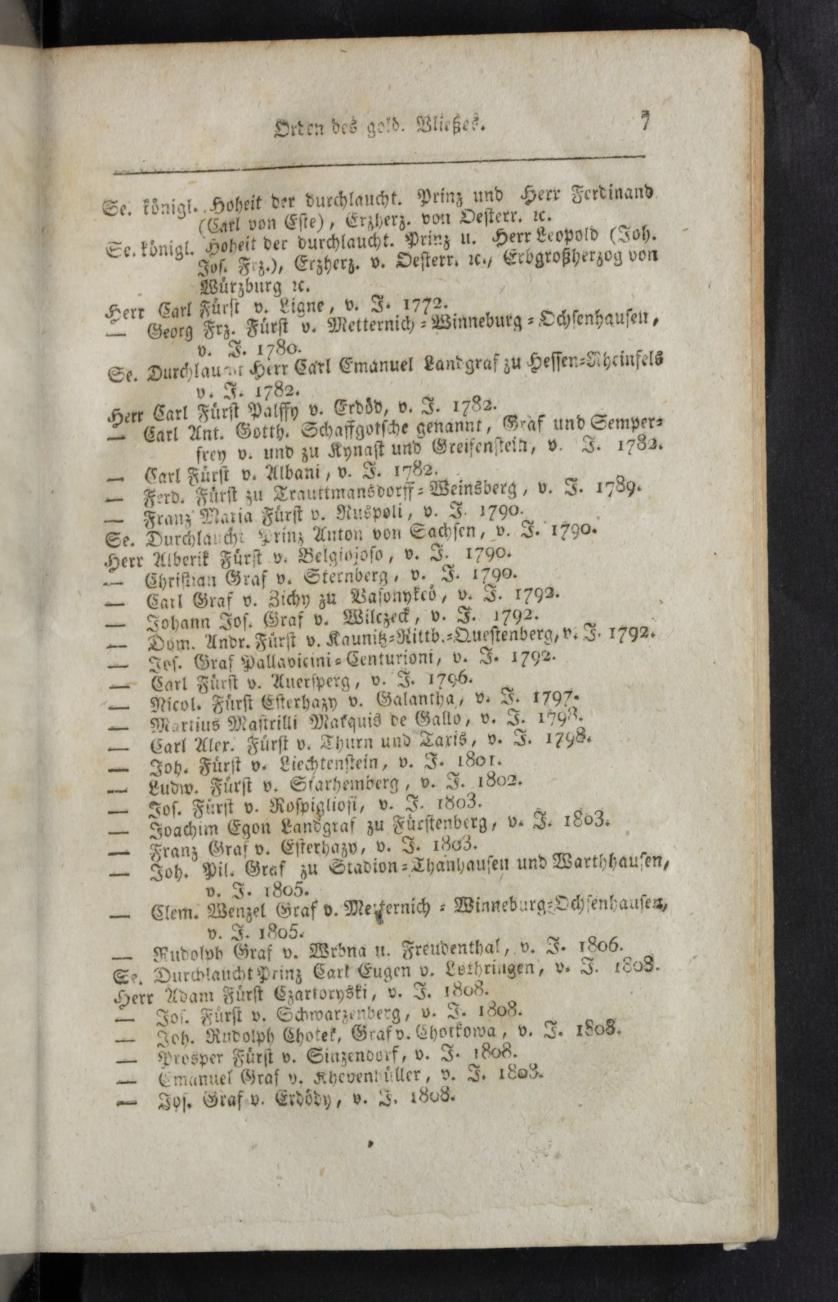 Orden des gold. Vließes. 7
Se. königl. Hoheit der durchlaucht. Prinz und Herr Ferdinand
(Carl von Este), Erzherz. von Oesterr. ꝛc.
Se. königl. Hoheit der durchlaucht. Prinz u. Herr Leopold (Joh.
Jos. Frz.), Erzherz. v. Oesterr. ꝛc., Erbgroßherzog von
Würzburg ꝛc.
Herr Carl Fürst v. Ligne, v. J. 1772.
— Georg Frz. Fürst v. Metternich-Winneburg-Ochsenhausen,
v. J. 1780.
Se. Durchlaucht Herr Carl Emanuel Landgraf zu Hessen-Rheinfels
v. J. 1782.
Herr Carl Fürst Palffy v. Erdöd, v. J. 1782.
— Carl Ant. Gotth. Schaffgotsche genannt, Graf und Semper-
frey v. und zu Kynast und Greifenstein, v. J. 1782.
— Carl Fürst v. Albani, v. J. 1782.
— Ferd. Fürst zu Trauttmansdorff-Weinsberg, v. J. 1789.
— Franz Maria Fürst v. Ruspoli, v. J. 1790.
Se. Durchlaucht Prinz Anton von Sachsen, v. J. 1790.
Herr Alberik Fürst v. Belgiojoso, v. J. 1790.
— Christian Graf v. Sternberg, v. J. 1790.
— Carl Graf v. Zichy zu Vasonykeö, v. J. 1792.
— Johann Jos. Graf v. Wilczeck, v. J. 1792.
— Dom. Andr. Fürst v. Kaunitz-Rittb.-Questenberg, v. J. 1792.
— Jos. Graf Pallavicini-Centurioni, v. J. 1792.
— Carl Fürst v. Auersperg, v. J. 1796.
— Nicol. Fürst Esterhazy v. Galantha, v. J. 1797.
— Martius Mastrilli Marquis de Gallo, v. J. 1798.
— Carl Alex. Fürst v. Thurn und Taxis, v. J. 1798.
— Joh. Fürst v. Liechtenstein, v. J. 1801.
— Ludw. Fürst v. Starhemberg, v. J. 1802.
— Jos. Fürst v. Rospigliosi, v. J. 1803.
— Joachim Egon Landgraf zu Fürstenberg, v. J. 1803.
— Franz Graf v. Esterhazy, v. J. 1803.
— Joh. Pil. Graf zu Stadion-Thanhausen und Warthhausen,
v. J. 1805.
— Clem. Wenzel Graf v. Metternich-Winneburg-Ochsenhausen,
v. J. 1805.
— Rudolph Graf v. Wrbna u. Freudenthal, v. J. 1806.
Se. Durchlaucht Prinz Carl Eugen v. Lothringen, v. J. 1808.
Herr Adam Fürst Czartoryski, v. J. 1808.
— Jos. Fürst v. Schwarzenberg, v. J. 1808.
— Joh. Rudolph Chotek, Graf v. Chotkowa, v. J. 1808.
— Prosper Fürst v. Sinzendorf, v. J. 1808.
— Emanuel Graf v. Khevenhüller, v. J. 1808.
— Jos. Graf v. Erdödy, v. J. 1808.